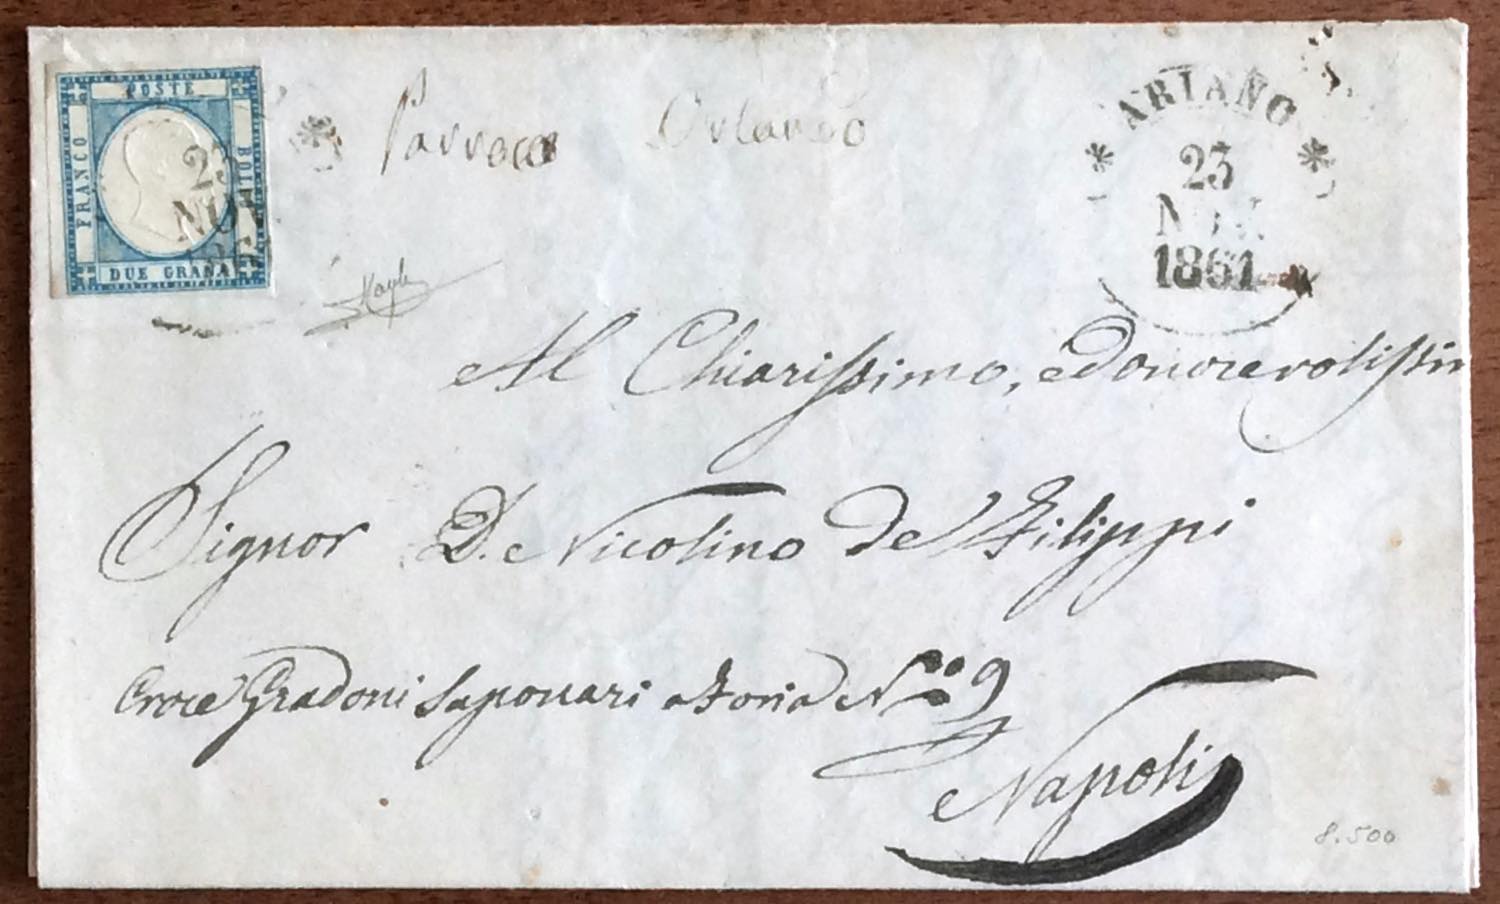 POSTE
FRANCO
BUIE
DUE GRANA
23
NOV
Parroco Orlando
ARIANO
23
NOV.
1861
Al Chiarissimo, ed onorevolissim
Signor D. Nicolino de Filippi
Croce Gradoni Saponari a Foria N.º 9
Napoli
8.500